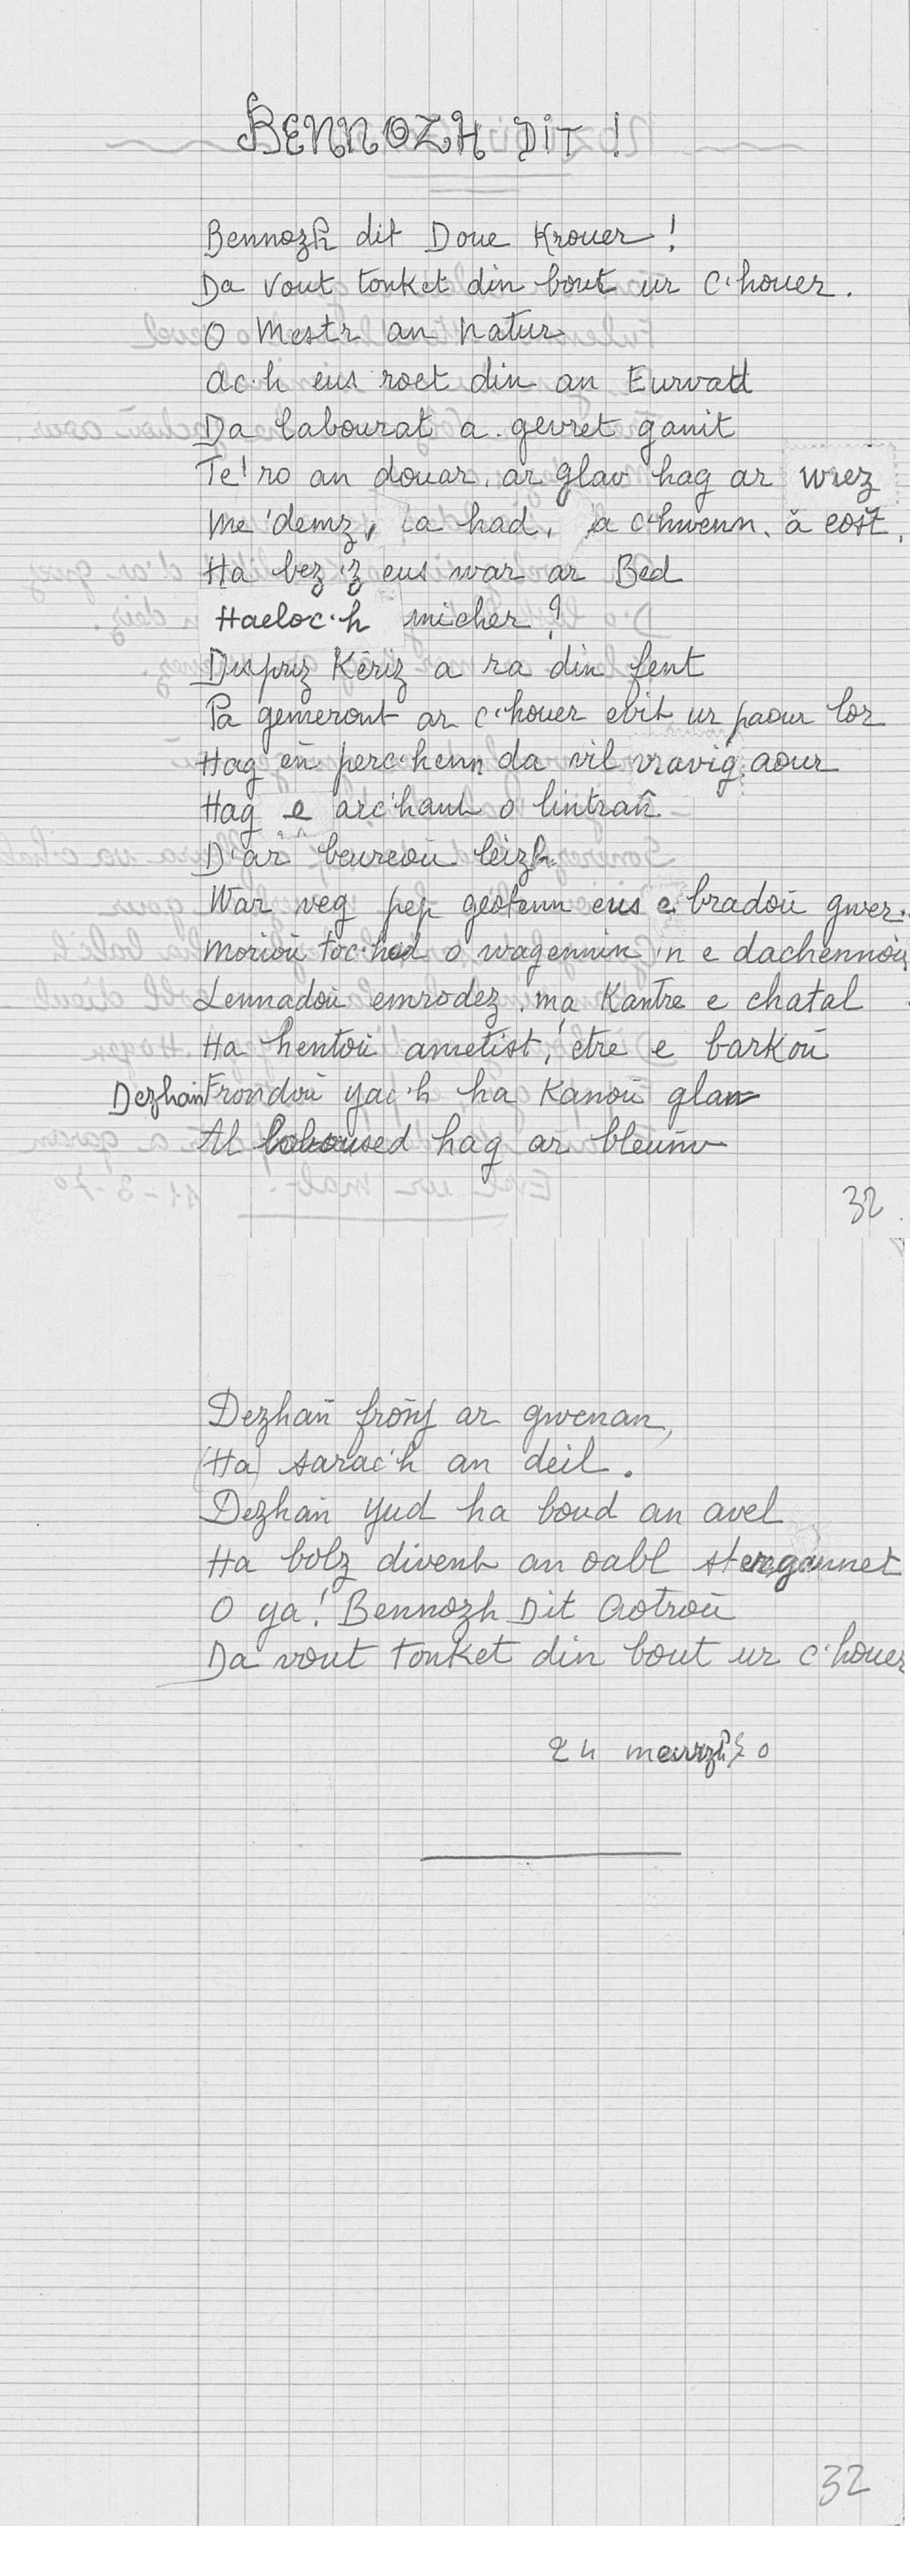 BENNOZH DIT !
Bennozh dit Doue Krouer !
Da vout tonket din bout ur c'houer.
O Mestr an natur
ac'h eus roet din an Eurvad
Da labourat a. gevret ganit
Te! ro an douar, ar glav hag ar wrez
Me 'demz, a had, a c'hwenn, a eost,
Ha bez 'z eus war ar Bed
Haeloc'h micher ?
Dispriz Kériz a ra din fent
Pa gemeront ar c'houer evit ur paour lor
Hag eñ perc'henn da vil vravig aour
Hag e arc'hant o lintrañ
D'ar beureoù leizh
War veg pep geotenn eus e bradoù gwer.
Morioù toc'had o wagennin 'n e dachennoù
Lennadoù emrodez, ma Kantre e chatal
Ha hentoù ametist, etre e barkoù
Dezhañ Frondoù yac'h ha Kanoù glan
Al laboused hag ar bleunv
32
Dezhañ froñs ar gwenan,
(Ha) sarac'h an deil.
Dezhañ yud ha boud an avel
Ha bolz divent an oabl stergannet
O ya! Bennozh Dit Aotroù
Da vout tonket din bout ur c'houer
24 meurzh 70
32